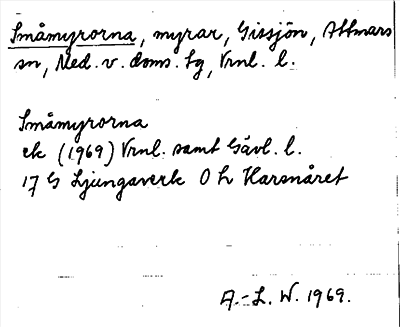 Småmyrorna, myrar, Gissjön, Attmars
sn, Med. v. doms. tg, Vrnl. l.
Småmyrorna
ek (1969) Vrnl. samt Gävl. l.
17 G Ljungaverk 0 h Harsnåret
A.-L. W. 1969.